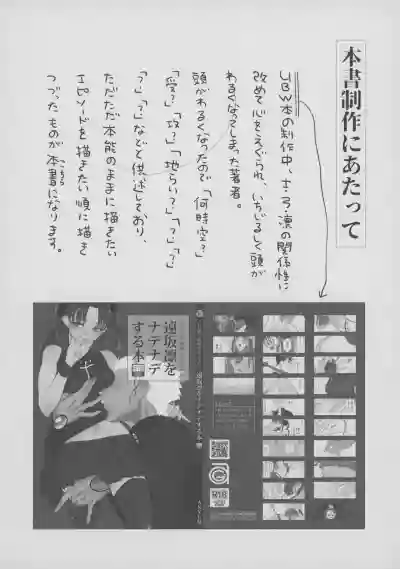 本書制作にあたって
UBW本の制作中、士、弓、凛の関係性に
改めて心をえぐられ、いちじるしく頭が
わるくなってしまった著者。
頭がわるくなったので「何時空?」
「受?」「攻?」「地らい?」「?」「?」
「?」「?」などと供述しており、
ただただ本能のままに描きたい
エピソードを描きたい順に描き
つづったものが本書になります。
遠坂凛を
ナデナデ
する本